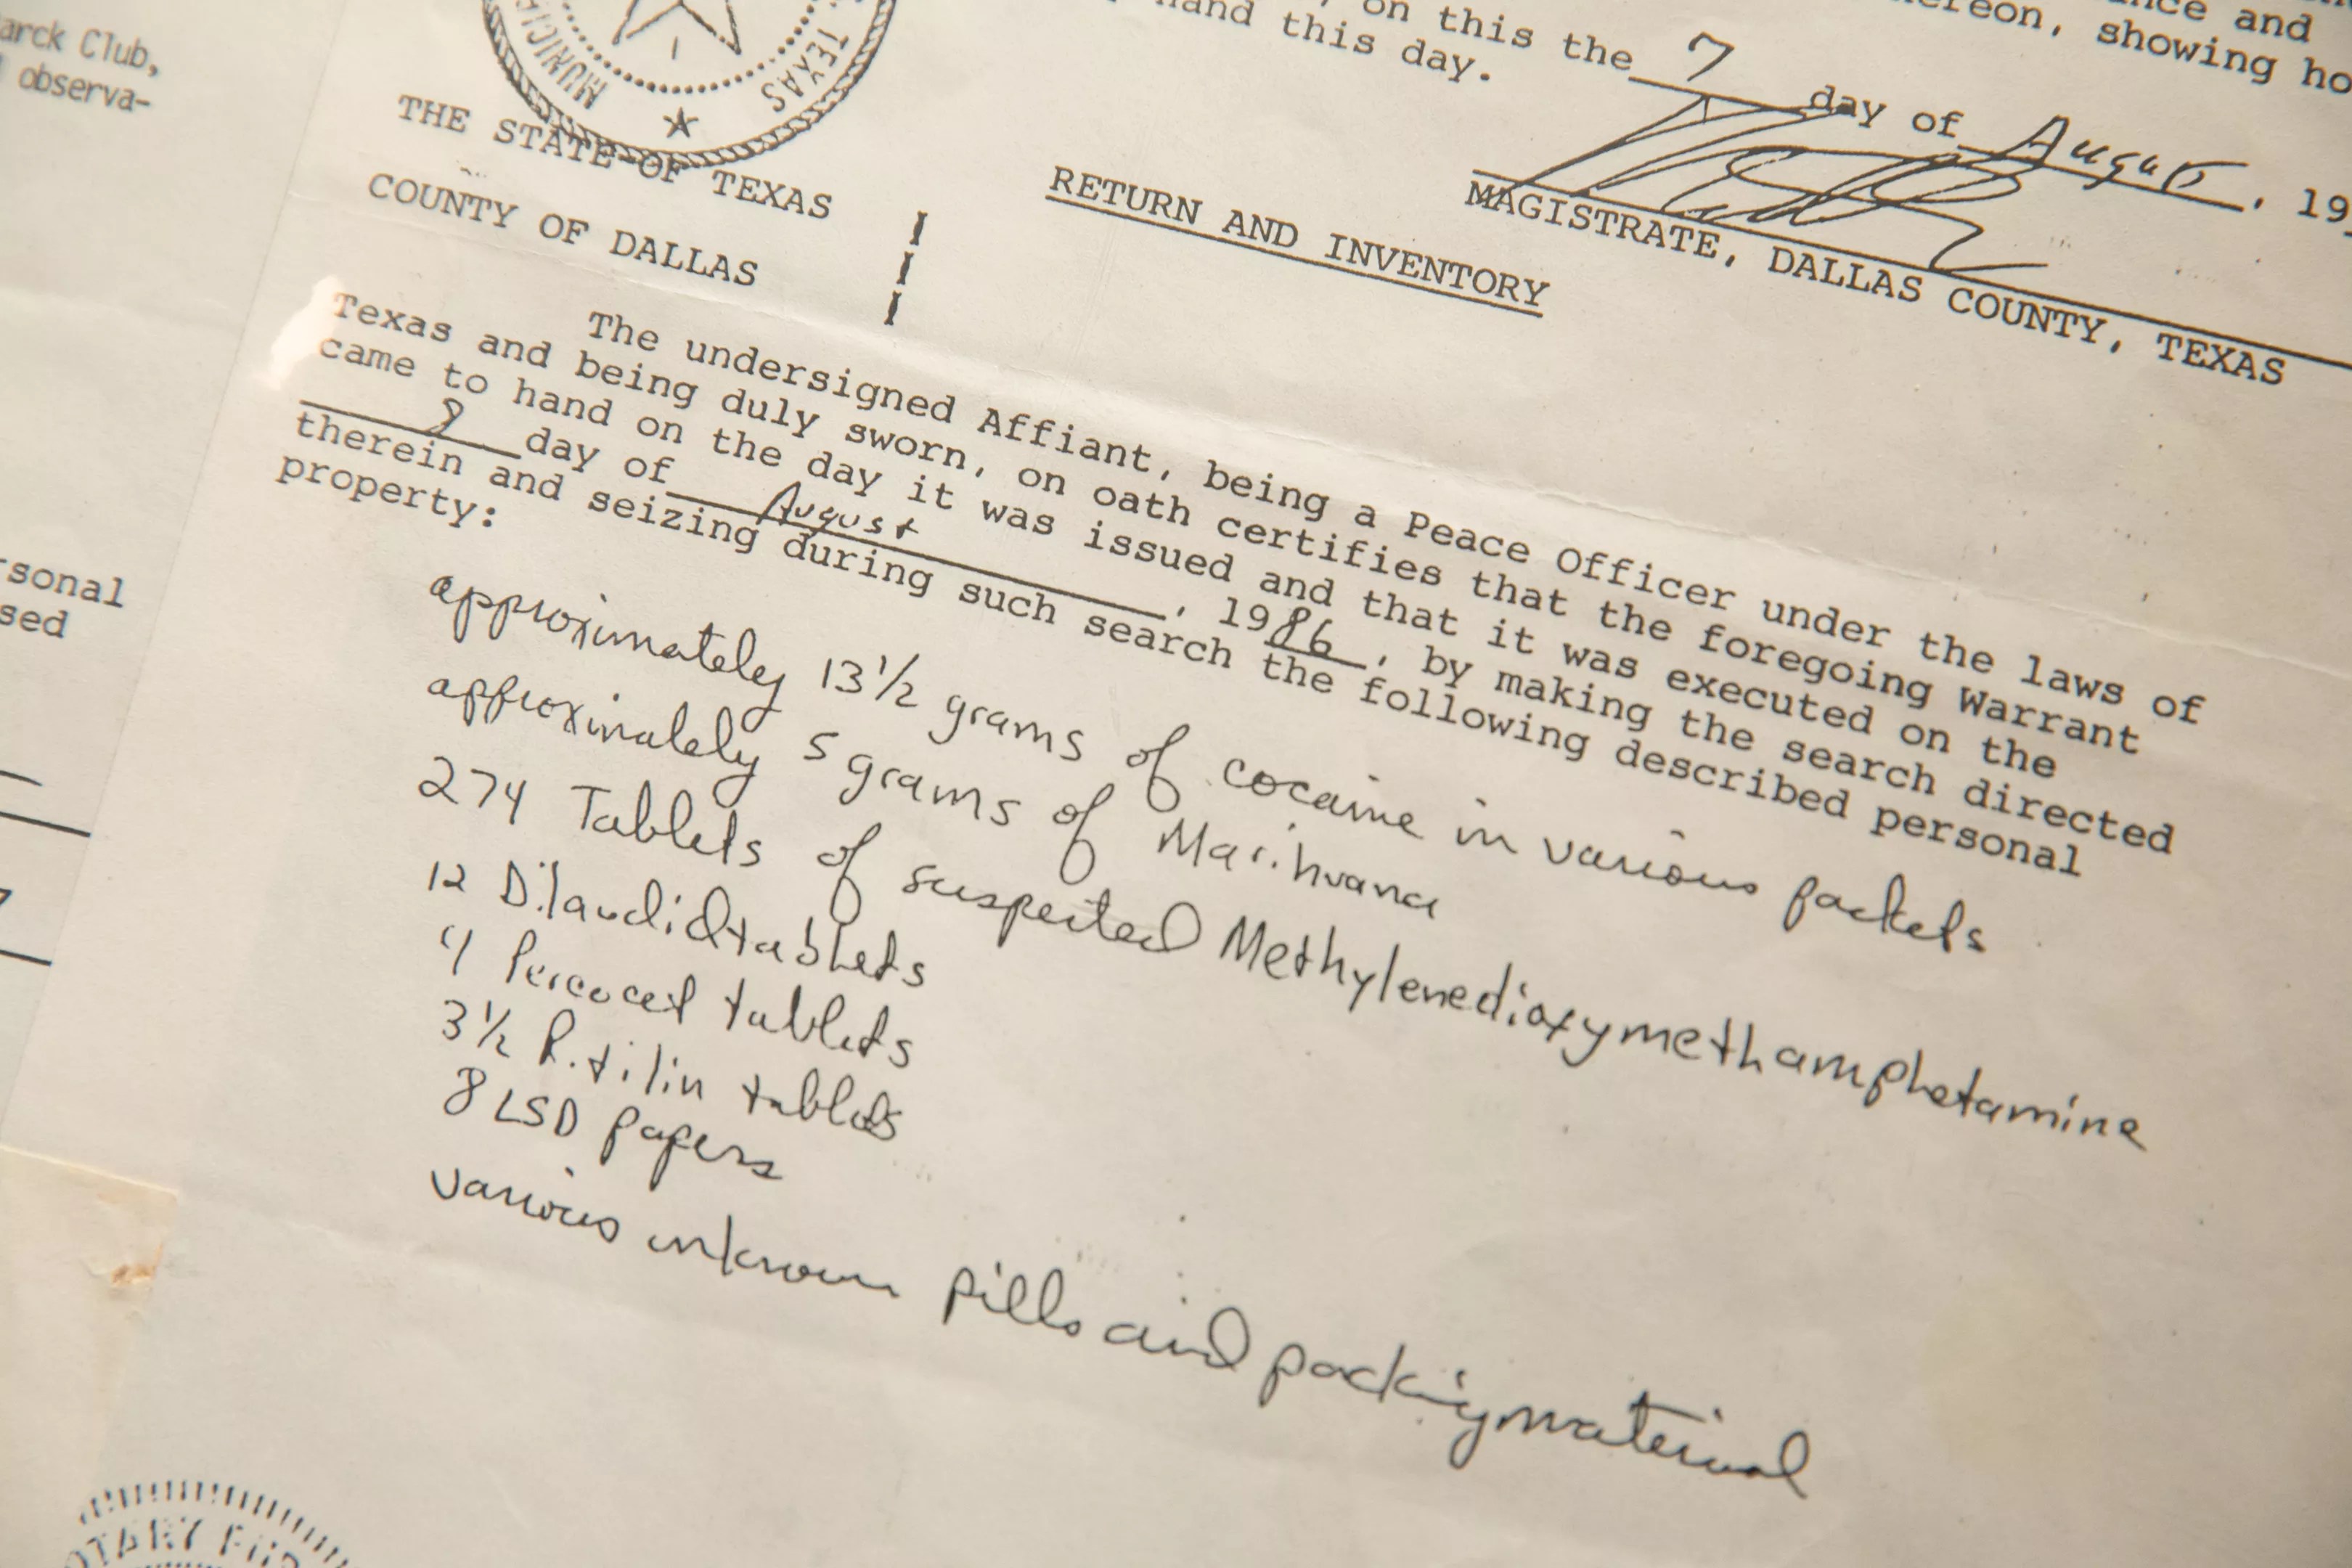 arck Club,
observa-
sonal
sed
MUNICI
TEXAS
nce and
hereon, showing ho
on this the 7 day of August, 19
hand this day.
MAGISTRATE, DALLAS COUNTY, TEXAS
THE STATE OF TEXAS
COUNTY OF DALLAS
RETURN AND INVENTORY
The undersigned Affiant, being a Peace Officer under the laws of
Texas and being duly sworn, on oath certifies that the foregoing Warrant
came to hand on the day it was issued and that it was executed on the
8 day of August, 1986, by making the search directed
therein and seizing during such search the following described personal
property:
approximately 13 1/2 grams of cocaine in various packets
approximately 5 grams of Marihuana
274 Tablets of suspected Methylenedioxymethamphetamine
12 Dilaudid tablets
4 Percocet tablets
3 1/2 Ritilin tablets
8 LSD papers
various unknown pills and packing material
OTARY PUB